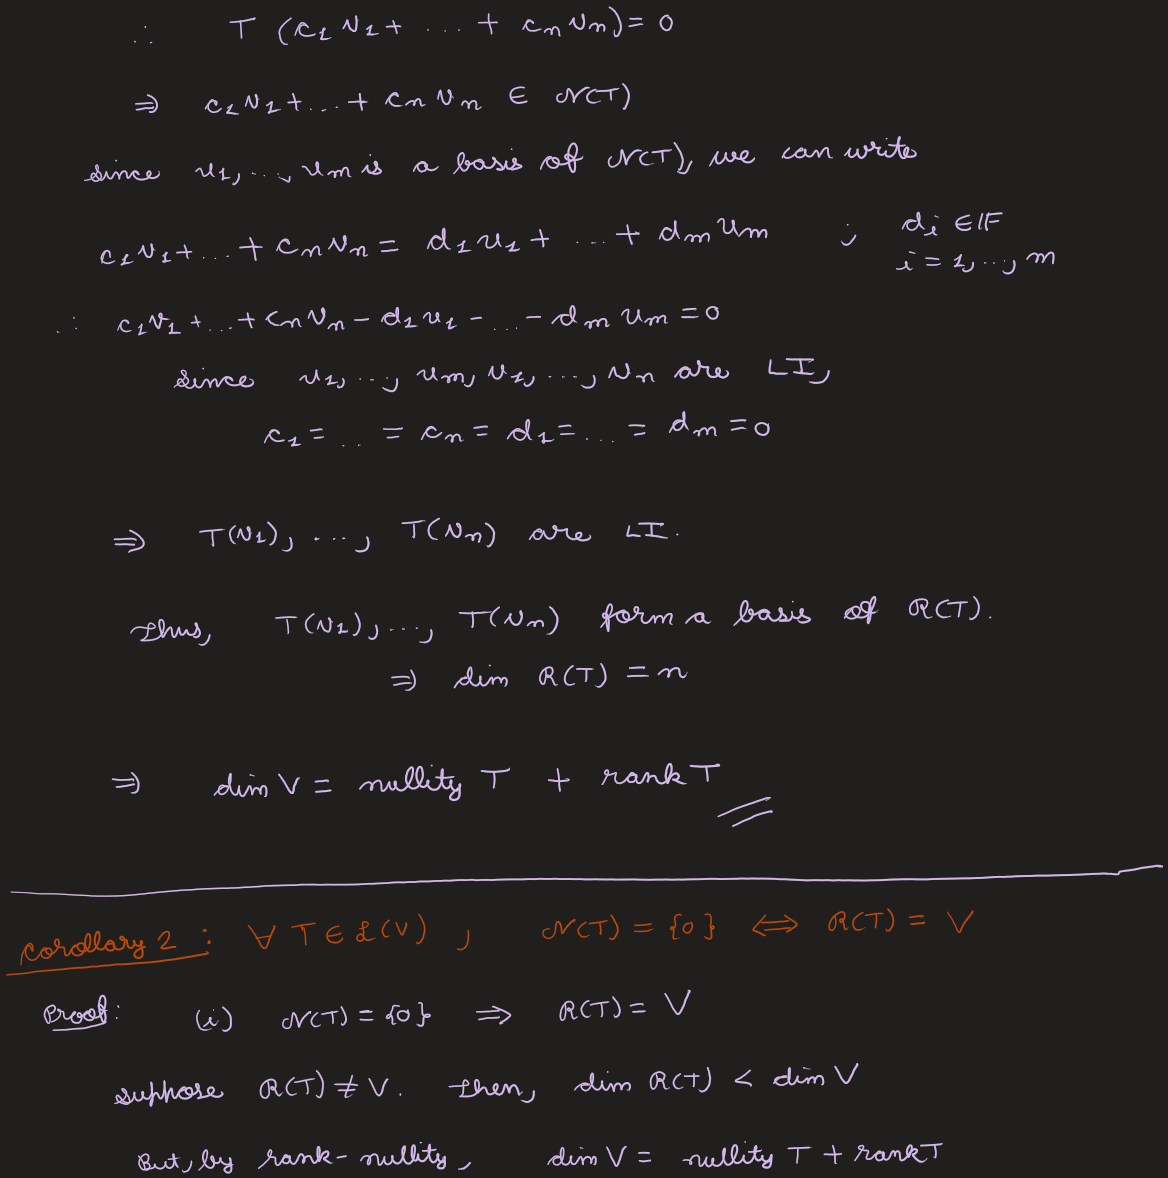 ∴ T (c₁v₁ + ... + cₙvₙ) = 0
⇒ c₁v₁ + ... + cₙvₙ ∈ N(T)
since u₁, ..., uₘ is a basis of N(T), we can write
c₁v₁ + ... + cₙvₙ = d₁u₁ + ... + dₘuₘ ; dᵢ ∈ 𝔽
i = 1, ..., m
∴ c₁v₁ + ... + cₙvₙ - d₁u₁ - ... - dₘuₘ = 0
since u₁, ..., uₘ, v₁, ..., vₙ are LI,
c₁ = .. = cₙ = d₁ = ... = dₘ = 0
⇒ T(v₁), ..., T(vₙ) are LI.
Thus, T(v₁), ..., T(vₙ) form a basis of R(T).
⇒ dim R(T) = n
⇒ dim V = nullity T + rank T
Corollary 2 : ∀ T ∈ ℒ(V) , N(T) = {0} ⇔ R(T) = V
Proof: (i) N(T) = {0} ⇒ R(T) = V
suppose R(T) ≠ V. Then, dim R(T) < dim V
But, by rank-nullity, dim V = nullity T + rank T